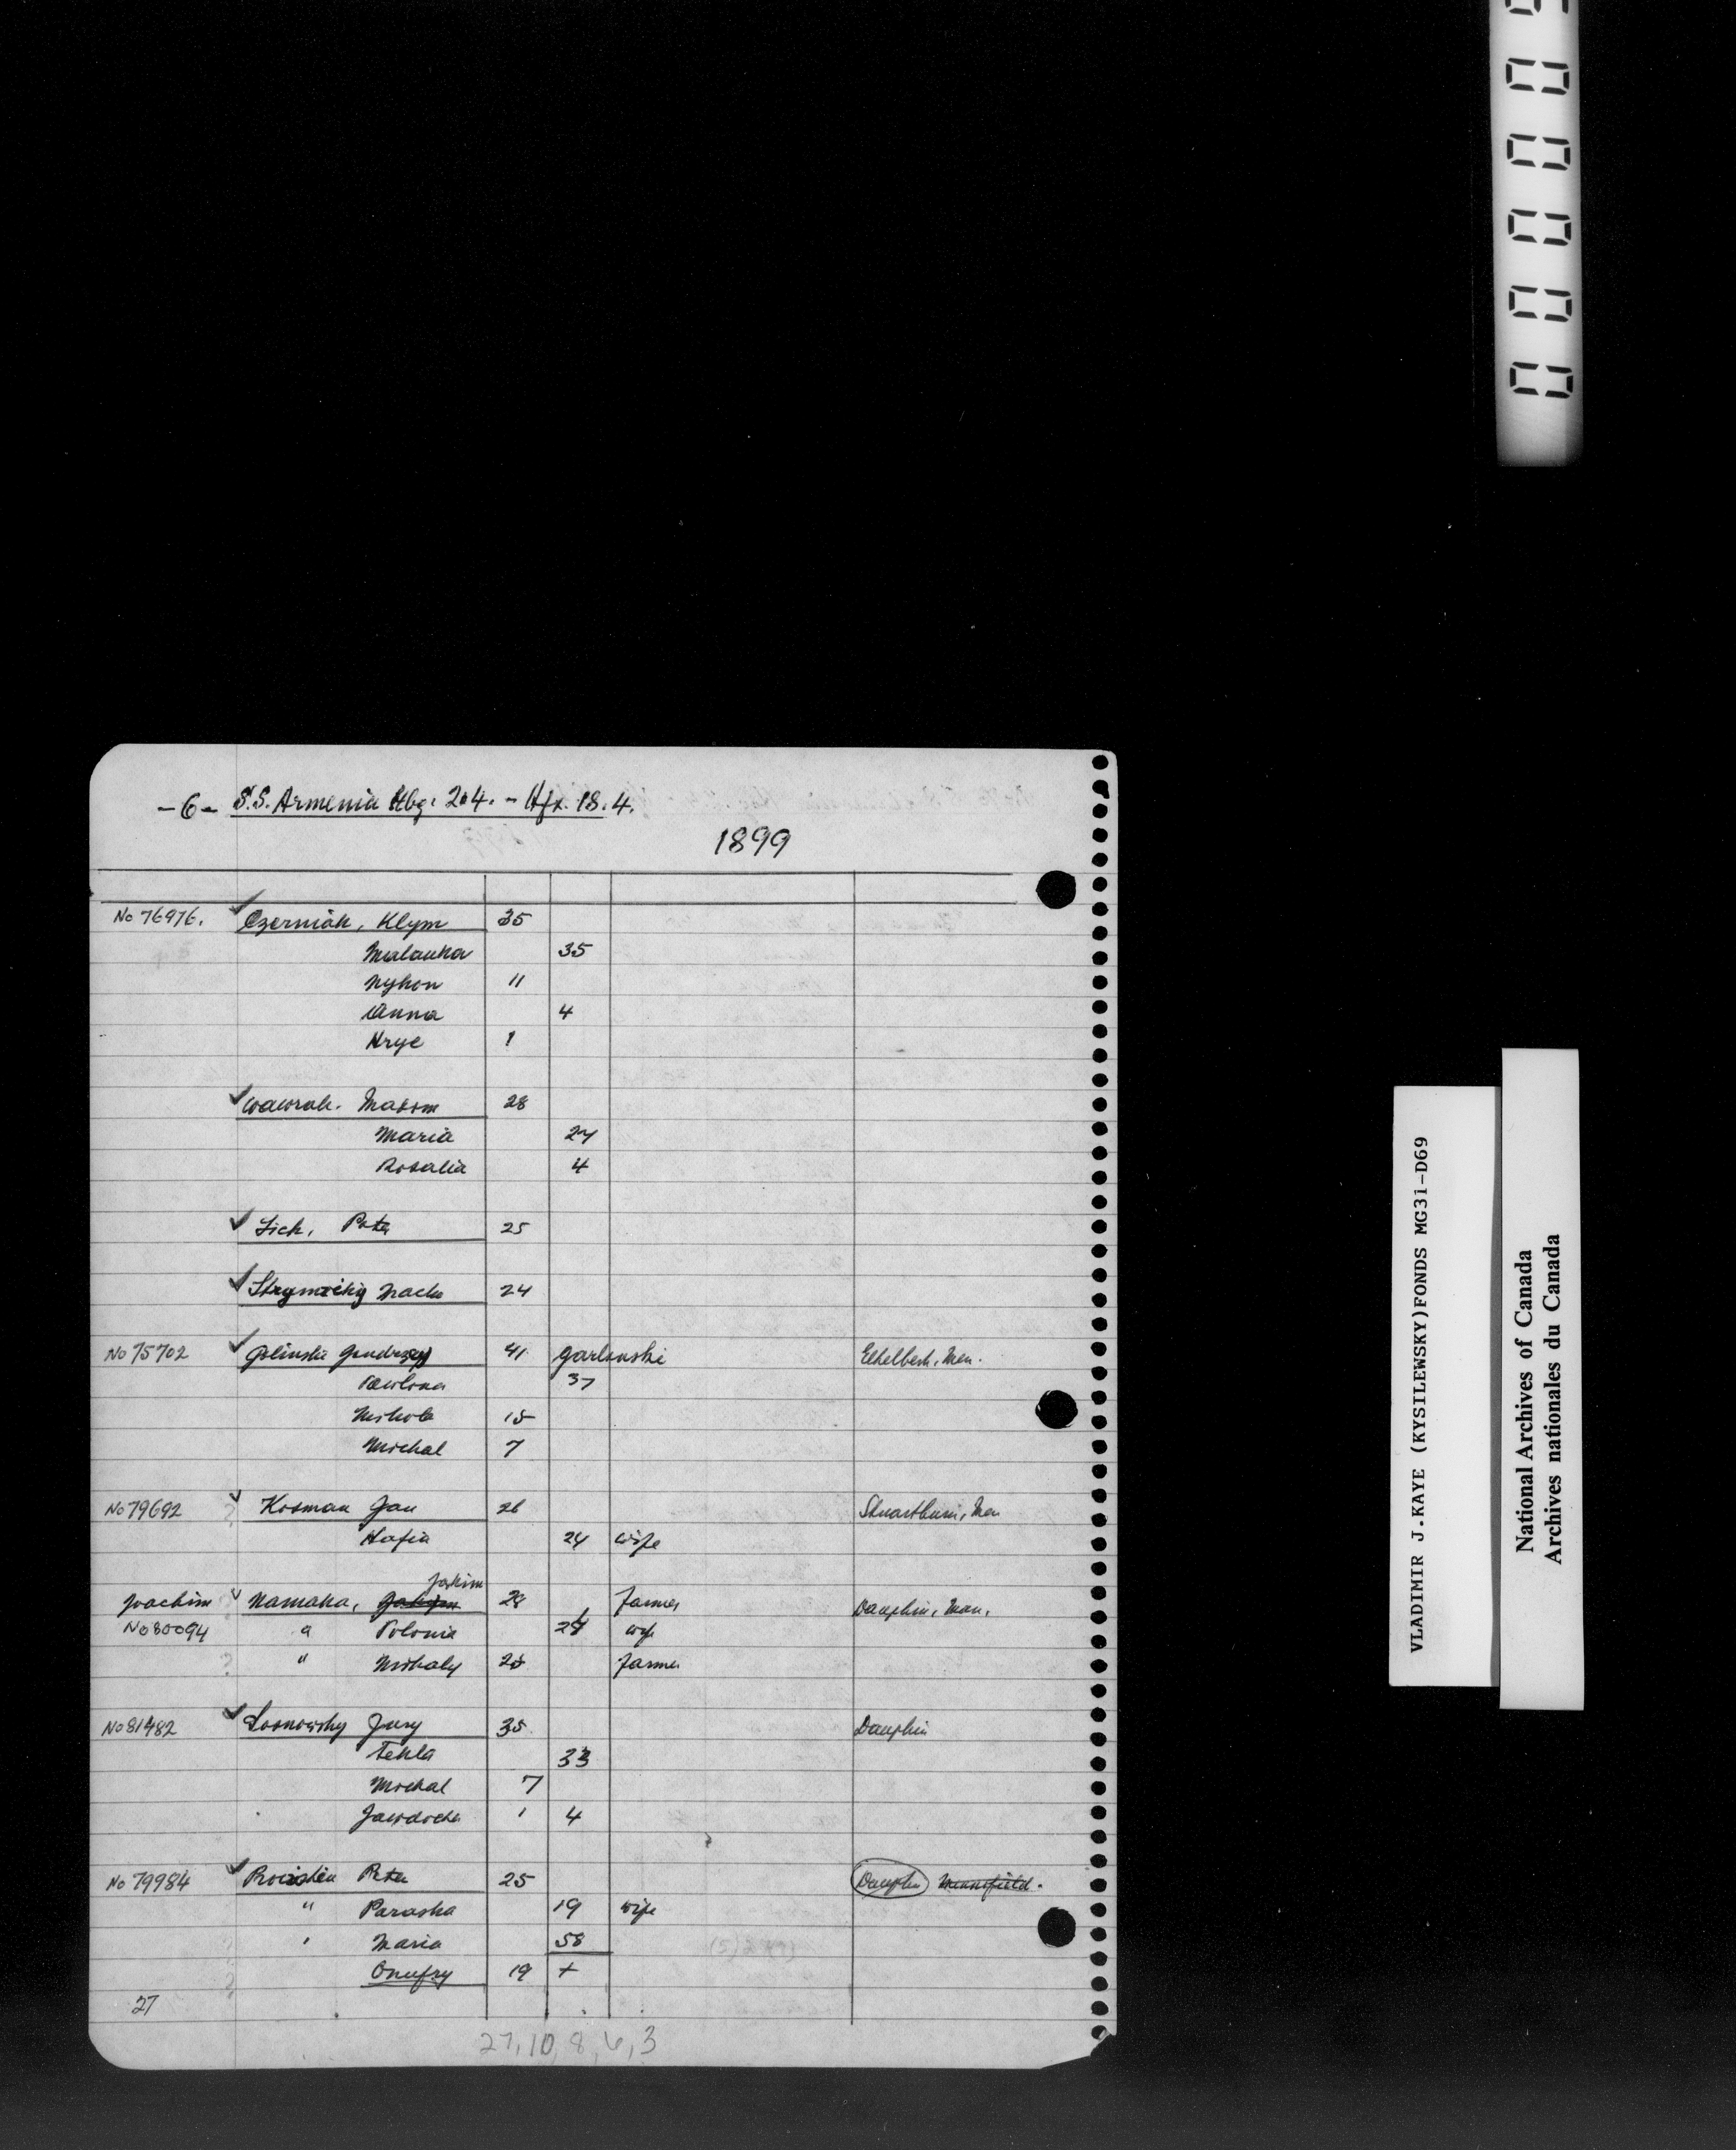 -6- S.S. Armenia Hbg. 2.4. - Hfx. 18.4.
1899
No 76976. Czerniak, Klym 35
Malanka 35
Nykon 11
Anna 4
Hryc 1
Wawruk. Maksm 28
Maria 24
Rosalia 4
Lich, Peter 25
24
No 75702 41 Garlinski Ethelbert, Man.
Pawlina 37
Mikola 15
Michal 7
No 79692 ? Kosman Jan 26 Stuartburn, Man
Hafia 24 wife
Jakim
Joachim Namaka, Jakym 28 Farmer Dauphin, Man.
No 80094 " Polonia wife
? " Mihaly Farmer
No 81482 Sosnowsky Jury 35 Dauphin
Tekla 33
Michal 7
Jawdocha 1 4
No 79984 Peter 25 Dauphin
" Paraska 19 wife
" Maria 58
? Onufry 19 +
27
27, 10, 8, 6, 3
VLADIMIR J.KAYE (KYSILEWSKY)FONDS MG31-D69
National Archives of Canada
Archives nationales du Canada